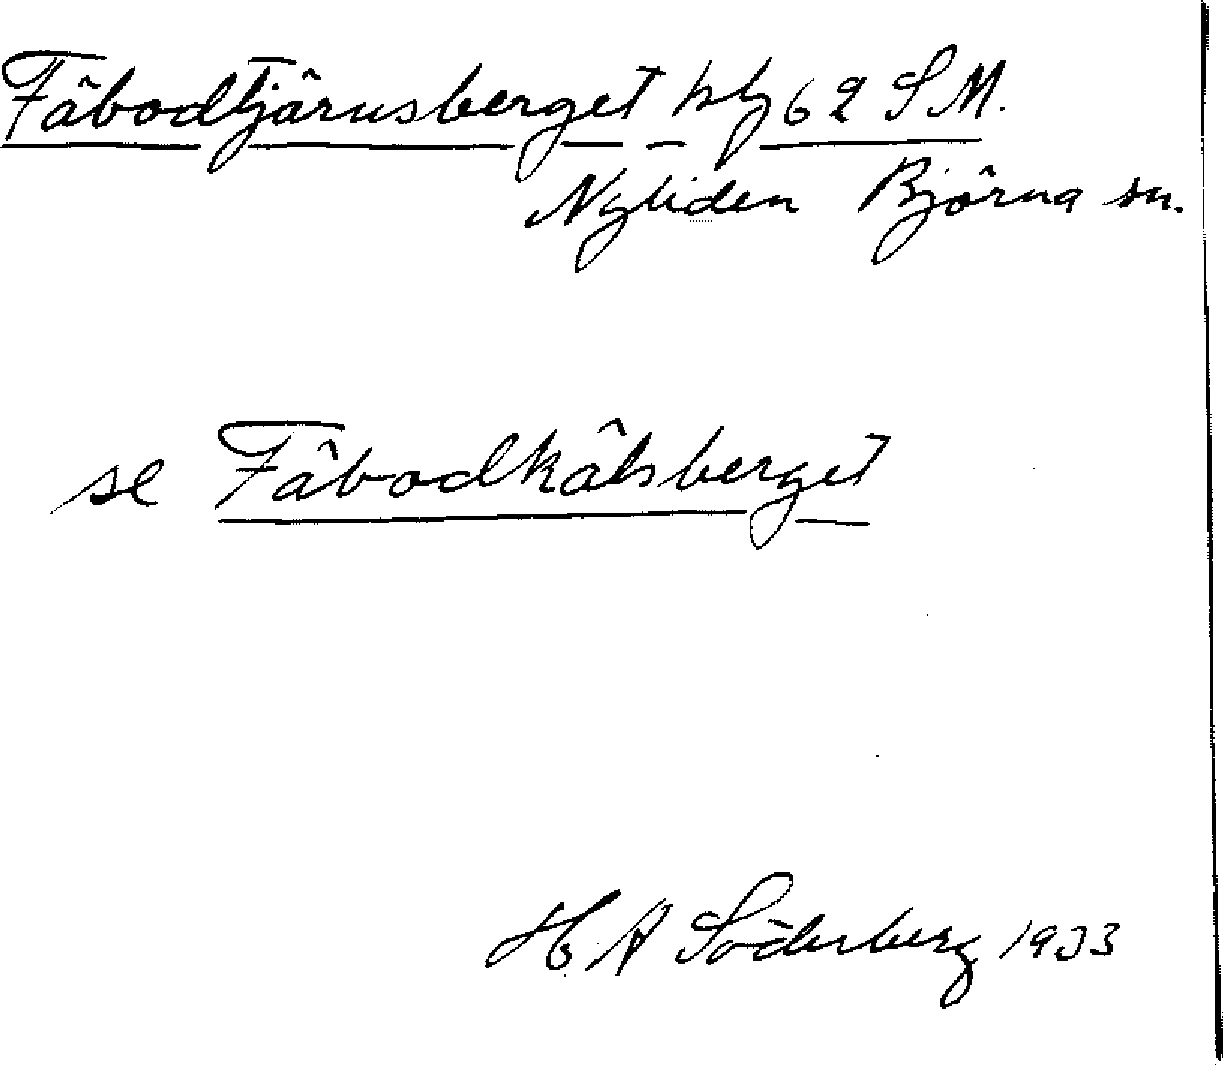 Fäbodtjärnsberget hlj 62 S M.
Nyliden Björna sn.
se Fäbodkälsberget
H A Söderberg 1933